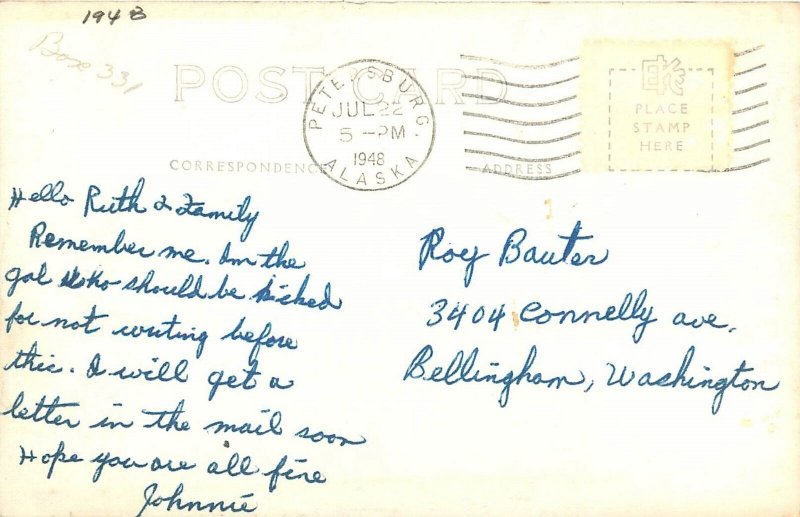 1948
Box 331
POST CARD
PETERSBURG.
JUL 22
5 - PM
1948
ALASKA
PLACE
STAMP
HERE
CORRESPONDENCE
ADDRESS
Hello Ruth & Family
Remember me. Im the
gal who should be kicked
for not writing before
this. I will get a
letter in the mail soon
Hope you are all fine
Johnnie
Roy Bauter
3404 Connelly ave.
Bellingham, Washington